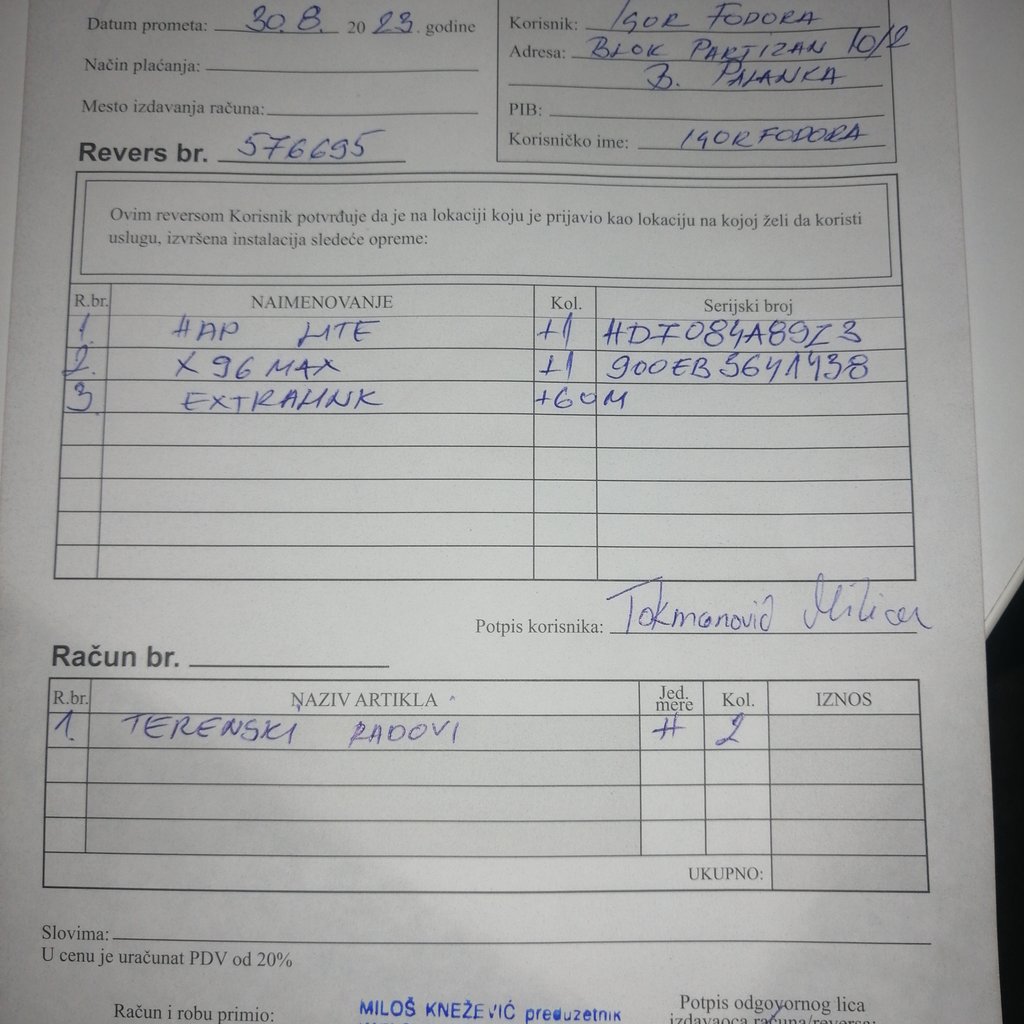 Datum prometa: 30.8. 2023. godine
Način plaćanja:
Mesto izdavanja računa:
Revers br. 576695
Korisnik: IGOR FODORA
Adresa: BLOK PARTIZAN 10/2
B. PALANKA
PIB:
Korisničko ime: IGORFODORA
Ovim reversom Korisnik potvrđuje da je na lokaciji koju je prijavio kao lokaciju na kojoj želi da koristi
uslugu, izvršena instalacija sledeće opreme:
R.br. NAIMENOVANJE Kol. Serijski broj
1. HAP LITE +1 HDF084A89Z3
2. X96 MAX +1 900EB3641438
3. EXTRALINK +60M
Potpis korisnika: Tokmanović Milica
Račun br.
R.br. NAZIV ARTIKLA Jed. mere Kol. IZNOS
1. TERENSKI RADOVI H 2
UKUPNO:
Slovima:
U cenu je uračunat PDV od 20%
Račun i robu primio:
MILOŠ KNEŽEVIĆ preduzetnik
Potpis odgovornog lica
izdavaoca računa/reversa: